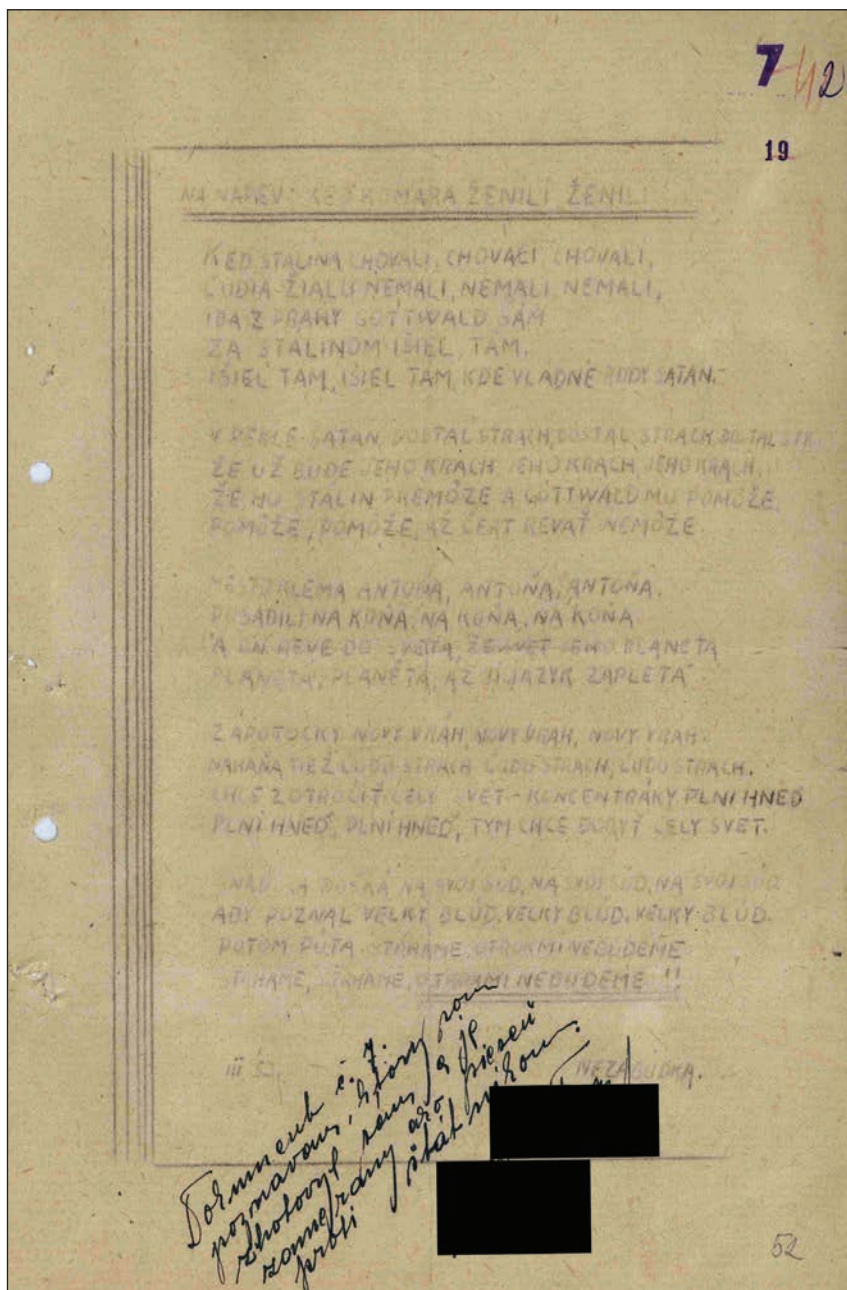 7 /12
19
NA NÁPEV: KEĎ KOMÁRA ŽENILI ŽENILI
KEĎ STALINA CHOVALI, CHOVALI CHOVALI,
ĽUDIA ŽIALU NEMALI, NEMALI, NEMALI,
IBA Z PRAHY GOTTWALD SÁM
ZA STALINOM IŠIEL, TAM.
IŠIEL TAM, IŠIEL TAM, KDE VLADNE RUDY SATAN.
V PEKLE SATAN DOSTAL STRACH, DOSTAL STRACH, DOSTAL STR
ŽE UŽ BUDE JEHO KRACH JEHO KRACH, JEHO KRACH,
ŽE HO STALIN PREMÔŽE A GOTTWALD MU POMÔŽE,
POMÔŽE, POMÔŽE, AŽ ČERT REVAŤ NEMÔŽE.
ANTOŇA, ANTOŇA, ANTOŇA.
POSADILI NA KOŇA, NA KOŇA, NA KOŇA
A ON REVE DO SVETA, ŽE SVET JEHO PLANETA
PLANETA, PLANETA, AŽ JAZYK ZAPLETA
ZÁPOTOCKÝ NOVÝ VRAH, NOVÝ VRAH, NOVÝ VRAH.
NAHÁŇA TIEŽ ĽUDU STRACH ĽUDU STRACH, ĽUDU STRACH.
CHCE ZOTROČIŤ CELÝ SVET - KONCENTRÁKY PLNÍ HNEĎ
PLNÍ HNEĎ, PLNÍ HNEĎ, TÝM CHCE DOBYŤ CELÝ SVET.
NA SVOJ SÚD, NA SVOJ SÚD, NA SVOJ SÚD
ABY POZNAL VEĽKÝ BLUD, VEĽKÝ BLUD, VEĽKÝ BLUD.
POTOM PUTA STRHAME, OTROKMI NEBUDEME
STRHAME, STRHAME, OTROKMI NEBUDEME !!
III 53.
NEZÁBUDKA.
Dokument č. 7.
poznávam, ktorý som
zhotovyl sám a je
zamerany ako pieseň
proti štátnikom.
52